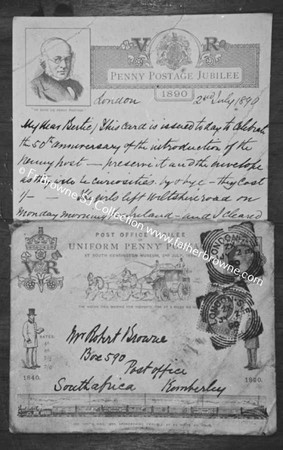 V R
PENNY POSTAGE JUBILEE
1890
London 2nd July 1890
My dear Bertie / This card is issued today to celebrate
the 50th anniversary of the introduction of the
penny post — preserve it and the envelope
as they will be curiosities by & bye — they cost
1/- girls left Wiltshire road on
Monday morning Ireland - and I cleared
© Farrowcrenes Collection www.fatherbrowne.com
POST OFFICE JUBILEE
UNIFORM PENNY
AT SOUTH KENSINGTON MUSEUM, 2ND JULY
V R
Mr Robert Browne
Box 590
Post office
South africa Kimberley
1840. 1890.